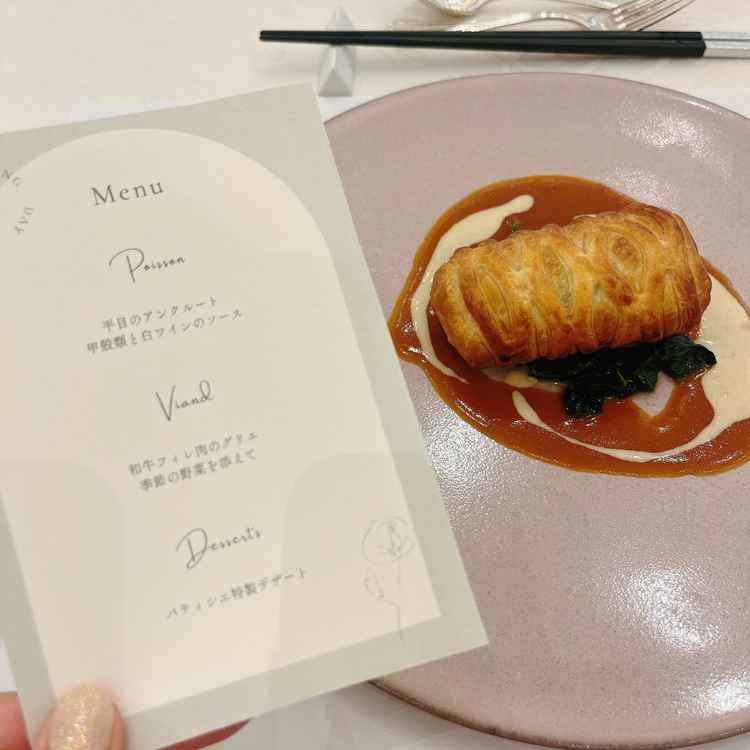 Menu
Poisson
平目のアンクルート
甲殻類と白ワインのソース
Viand
和牛フィレ肉のグリエ
季節の野菜を添えて
Desserts
パティシエ特製デザート